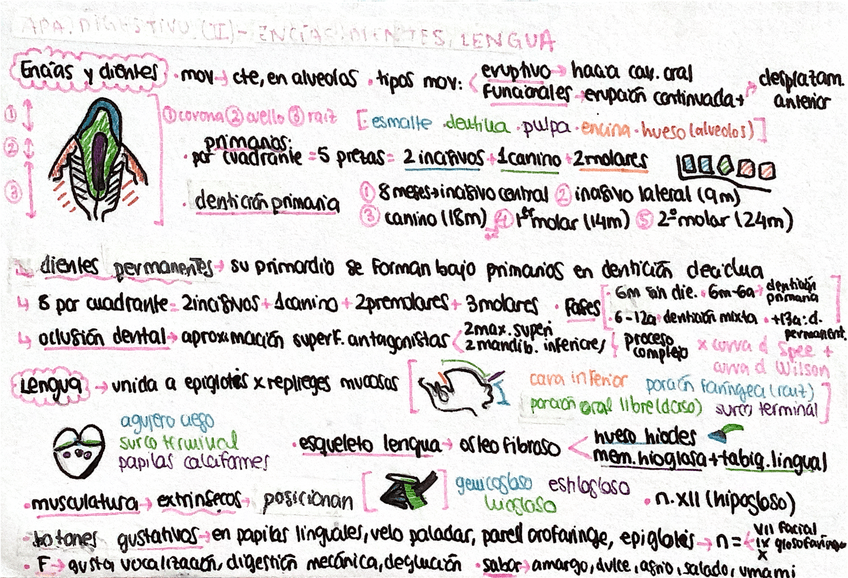 APA. DIGESTIVO (II) - ENCÍAS, DIENTES, LENGUA
Encías y dientes · mov → cte, en alveolos · tipos mov: eruptivo → hacia cav. oral
funcionales → erupción continuada + desplazam. anterior
① corona ② cuello ③ raíz [· esmalte · dentina · pulpa · encina · hueso (alveolos)]
① ② ③
primarios:
· por cuadrante = 5 piezas = 2 incisivos + 1 canino + 2 molares
· dentición primaria ① 8 meses → incisivo central ② incisivo lateral (9m)
③ canino (18m) ④ 1er molar (14m) ⑤ 2º molar (24m)
↳ dientes permanentes → su primordio se forman bajo primarios en dentición decidua
↳ 8 por cuadrante = 2 incisivos + 1 canino + 2 premolares + 3 molares · Fases [· 6m sin die. · 6m-6a → dentición primaria
· 6-12a → dentición mixta · +13a: d. permanent.]
↳ oclusión dental → aproximación superf. antagonistas < 2 max. superi
2 mandib. inferiores ↳ proceso complejo x curva d Spee + curva d Wilson
Lengua → unida a epiglotis x repliegues mucosas [cara inferior porción faríngea (raíz)
porción oral libre (dorso) surco terminal]
agujero ciego
surco terminal
papilas caliciformes
· esqueleto lengua → osteofibroso < hueso hiodes
mem. hioglosa + tabiq. lingual
· musculatura → extrínsecos → posicionan [geniogloso estilogloso
hiogloso] · n. XII (hipogloso)
· botones gustativos → en papilas linguales, velo paladar, pared orofaringe, epiglotis → n = < VII facial
IX glosofaringeo
X
· F → gusto, vocalización, digestión mecánica, deglución · sabor → amargo, dulce, agrio, salado, umami